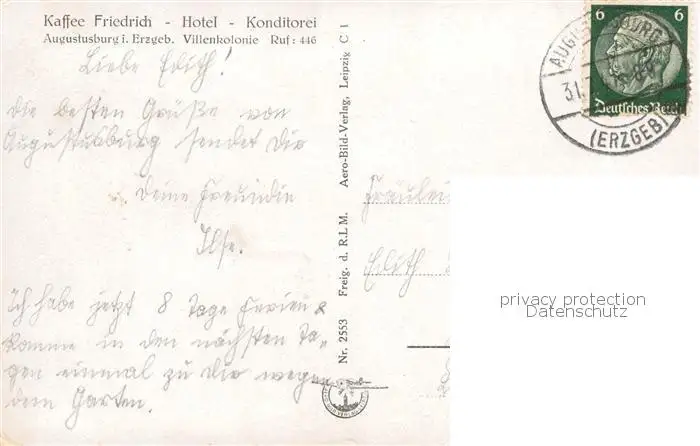 Kaffee Friedrich - Hotel - Konditorei
Augustusburg i. Erzgeb. Villenkolonie Ruf: 446
Liebe Edith!
Die besten Grüße von
Augustusburg sendet Dir
Deine Freundin
Ilse.
Ich habe jetzt 8 Tage Ferien &
komme in den nächsten Ta-
gen einmal zu Dir wegen
dem Garten.
Nr. 2553 Freig. d. R.L.M. Aero-Bild-Verlag, Leipzig C 1
6 6
Deutsches Reich
31.
(ERZGEB)
Fräulein
Edith
privacy protection
Datenschutz